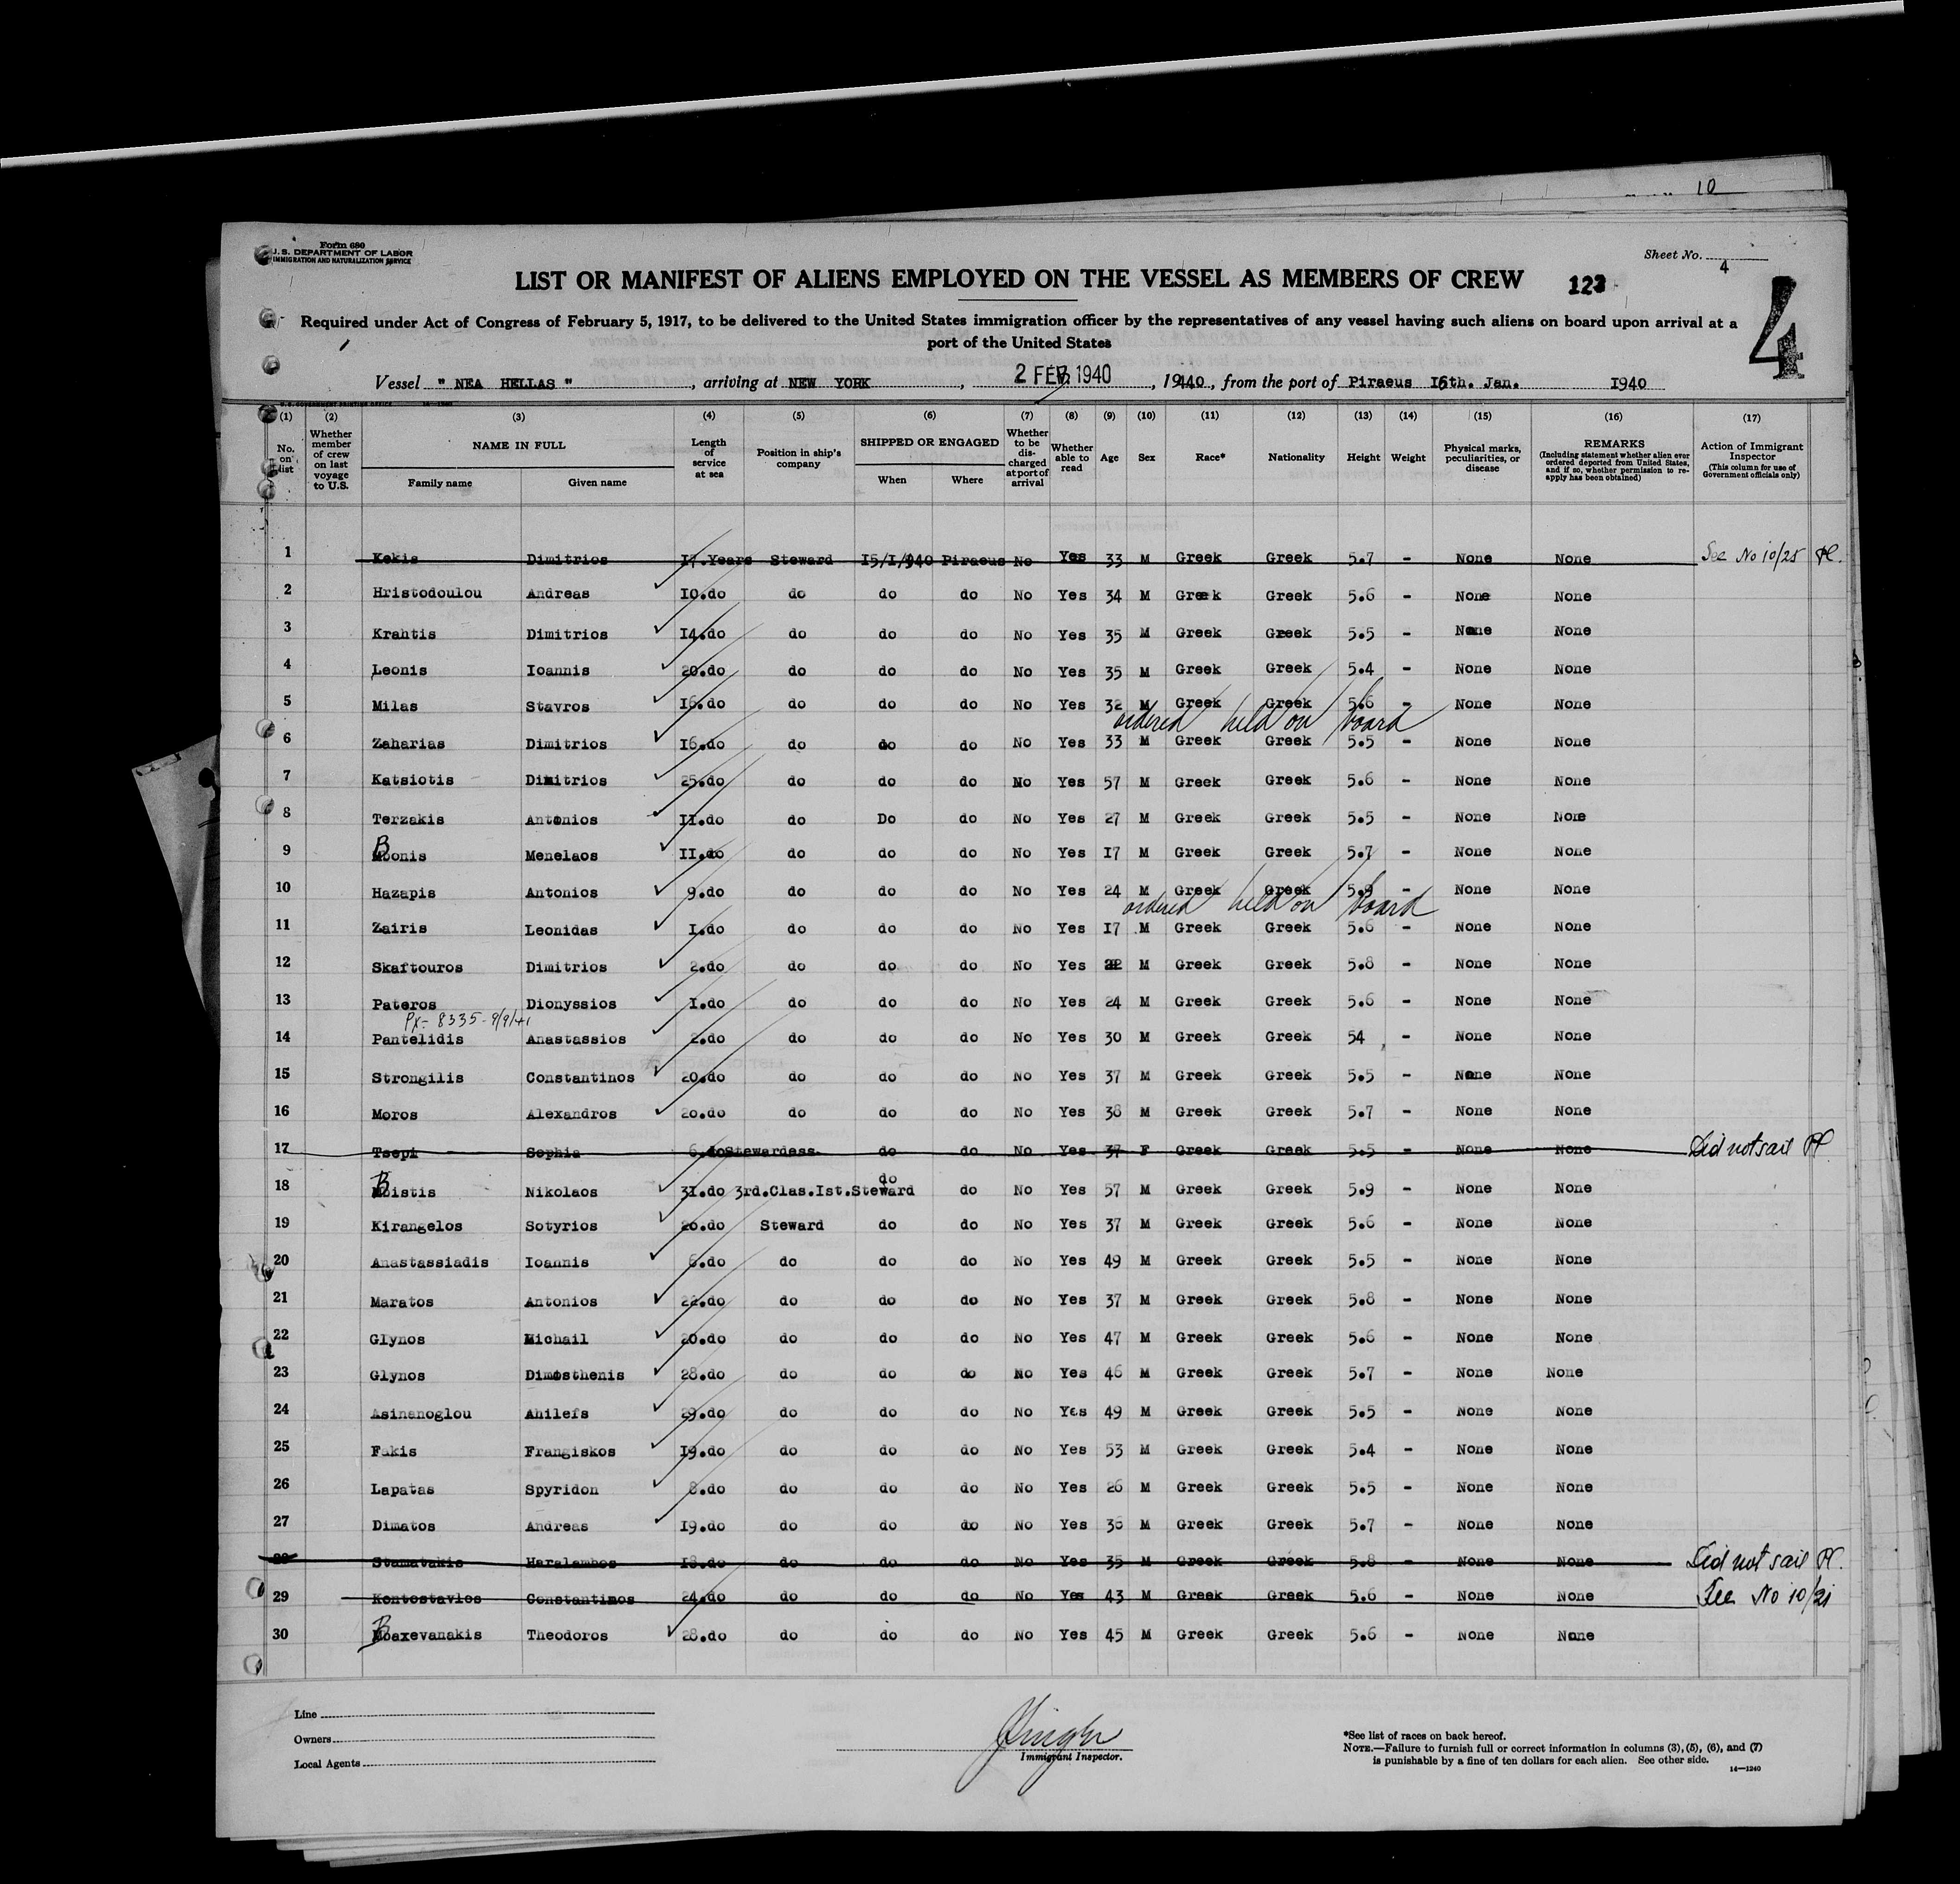 10
Form 680
U. S. DEPARTMENT OF LABOR
IMMIGRATION AND NATURALIZATION SERVICE
Sheet No. 4
LIST OR MANIFEST OF ALIENS EMPLOYED ON THE VESSEL AS MEMBERS OF CREW 123
4
Required under Act of Congress of February 5, 1917, to be delivered to the United States immigration officer by the representatives of any vessel having such aliens on board upon arrival at a
port of the United States
Vessel " NEA HELLAS ", arriving at NEW YORK, 2 FEB 1940, 1940, from the port of Piraeus 16th. Jan. 1940
(1) (2) (3) (4) (5) (6) (7) (8) (9) (10) (11) (12) (13) (14) (15) (16) (17)
No. on list Whether member of crew on last voyage to U.S. NAME IN FULL Family name Given name Length of service at sea Position in ship's company SHIPPED OR ENGAGED When Where Whether to be discharged at port of arrival Whether able to read Age Sex Race* Nationality Height Weight Physical marks, peculiarities, or disease REMARKS (Including statement whether alien ever ordered deported from United States, and if so, whether permission to reapply has been obtained) Action of Immigrant Inspector (This column for use of Government officials only)
1 Kekis Dimitrios 17.Years Steward I5/I/940 Piraeus No Yes 33 M Greek Greek 5.7 - None None See No 10/25
2 Hristodoulou Andreas IO.do do do do No Yes 34 M Greek Greek 5.6 - None None
3 Krahtis Dimitrios I4.do do do do No Yes 35 M Greek Greek 5.5 - None None
4 Leonis Ioannis 20.do do do do No Yes 35 M Greek Greek 5.4 - None None
5 Milas Stavros I6.do do do do No Yes 32 M Greek Greek 5.6 - None None
ordered held on board
6 Zaharias Dimitrios I6.do do do do No Yes 33 M Greek Greek 5.5 - None None
7 Katsiotis Dimitrios 25.do do do do No Yes 57 M Greek Greek 5.6 - None None
8 Terzakis Antonios II.do do Do do No Yes 27 M Greek Greek 5.5 - None None
9 Boonis Menelaos II.do do do do No Yes I7 M Greek Greek 5.7 - None None
10 Hazapis Antonios 9.do do do do No Yes 24 M Greek Greek 5.9 - None None
ordered held on board
11 Zairis Leonidas I.do do do do No Yes I7 M Greek Greek 5.6 - None None
12 Skaftouros Dimitrios 2.do do do do No Yes 22 M Greek Greek 5.8 - None None
13 Pateros Dionyssios I.do do do do No Yes 24 M Greek Greek 5.6 - None None
Px- 8335-9/9/41
14 Pantelidis Anastassios 2.do do do do No Yes 30 M Greek Greek 54 - None None
15 Strongilis Constantinos 20.do do do do No Yes 37 M Greek Greek 5.5 - None None
16 Moros Alexandros 20.do do do do No Yes 38 M Greek Greek 5.7 - None None
17 Tsepi Sophia 6.do Stewardess do do No Yes 37 F Greek Greek 5.5 - None None Did not sail
18 Boistis Nikolaos 3I.do 3rd.Clas.Ist.Steward do do No Yes 57 M Greek Greek 5.9 - None None
19 Kirangelos Sotyrios 20.do Steward do do No Yes 37 M Greek Greek 5.6 - None None
20 Anastassiadis Ioannis 6.do do do do No Yes 49 M Greek Greek 5.5 - None None
21 Maratos Antonios 22.do do do do No Yes 37 M Greek Greek 5.8 - None None
22 Glynos Michail 20.do do do do No Yes 47 M Greek Greek 5.6 - None None
23 Glynos Dimosthenis 28.do do do do No Yes 46 M Greek Greek 5.7 - None None
24 Asinanoglou Ahilefs 29.do do do do No Yes 49 M Greek Greek 5.5 - None None
25 Fakis Frangiskos I9.do do do do No Yes 53 M Greek Greek 5.4 - None None
26 Lapatas Spyridon 8.do do do do No Yes 26 M Greek Greek 5.5 - None None
27 Dimatos Andreas I9.do do do do No Yes 36 M Greek Greek 5.7 - None None
28 Stamatakis Haralambos I8.do do do do No Yes 35 M Greek Greek 5.8 - None None Did not sail
29 Kontostavlos Constantinos 24.do do do do No Yes 43 M Greek Greek 5.6 - None None See No 10/21
30 Boaxevanakis Theodoros 28.do do do do No Yes 45 M Greek Greek 5.6 - None None
Line
Owners
Local Agents
Immigrant Inspector.
*See list of races on back hereof.
NOTE.—Failure to furnish full or correct information in columns (3), (5), (6), and (7)
is punishable by a fine of ten dollars for each alien. See other side.
14—1240